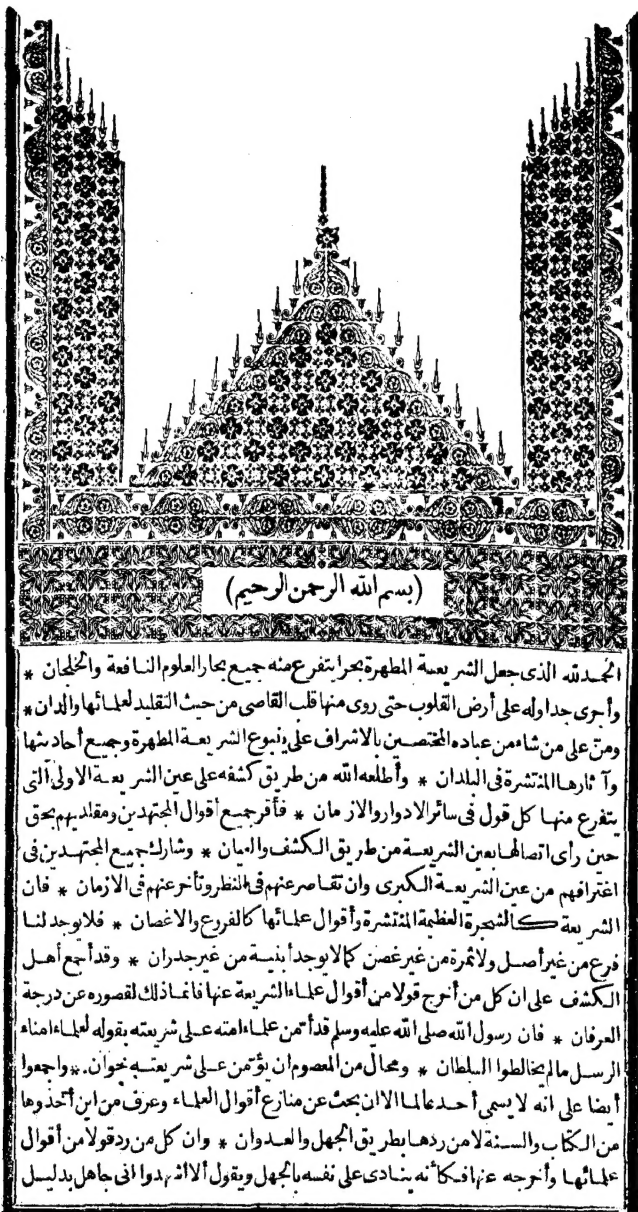 (بسم الله الرحمن الرحيم)
الحمد لله الذى جعل الشريعة المطهرة بحرا يتفرع منه جميع بحار العلوم النافعة والخلجان *
وأجرى جداوله على أرض القلوب حتى روى منها قلب القاصى من حيث التقليد لعلمائها والدان *
ومنّ على من شاء من عباده المختصين بالاشراف على ينبوع الشريعة المطهرة وجميع أحاديثها
وآثارها المنتشرة فى البلدان * وأطلعه الله من طريق كشفه على عين الشريعة الاولى التى
يتفرع منها كل قول فى سائر الادوار والازمان * فأقر جميع أقوال المجتهدين ومقلديهم بحق
حين رأى اتصالها بعين الشريعة من طريق الكشف والعيان * وشارك جميع المجتهدين فى
اغترافهم من عين الشريعة الكبرى وان تقاصر عنهم فى النظر وتأخر عنهم فى الازمان * فان
الشريعة كالشجرة العظيمة المنتشرة وأقوال علمائها كالفروع والاغصان * فلا يوجد لنا
فرع من غير أصل ولا ثمرة من غير غصن كما لا يوجد أبنية من غير جدران * وقد أجمع أهل
الكشف على ان كل من أخرج قولا من أقوال علماء الشريعة عنها فانما ذلك لقصوره عن درجة
العرفان * فان رسول الله صلى الله عليه وسلم قد أمن علماء امته على شريعته بقوله العلماء امناء
الرسل مالم يخالطوا السلطان * ومحال من المعصوم ان يؤمن على شريعته خوان * واجمعوا
أيضا على انه لا يسمى أحد عالما الا ان بحث عن منازع أقوال العلماء وعرف من اين أخذوها
من الكتاب والسنة لا من ردها بطريق الجهل والعدوان * وان كل من رد قولا من أقوال
علمائها وأخرجه عنها فكأنه ينادى على نفسه بالجهل ويقول ألا اشهدوا انى جاهل بدليل